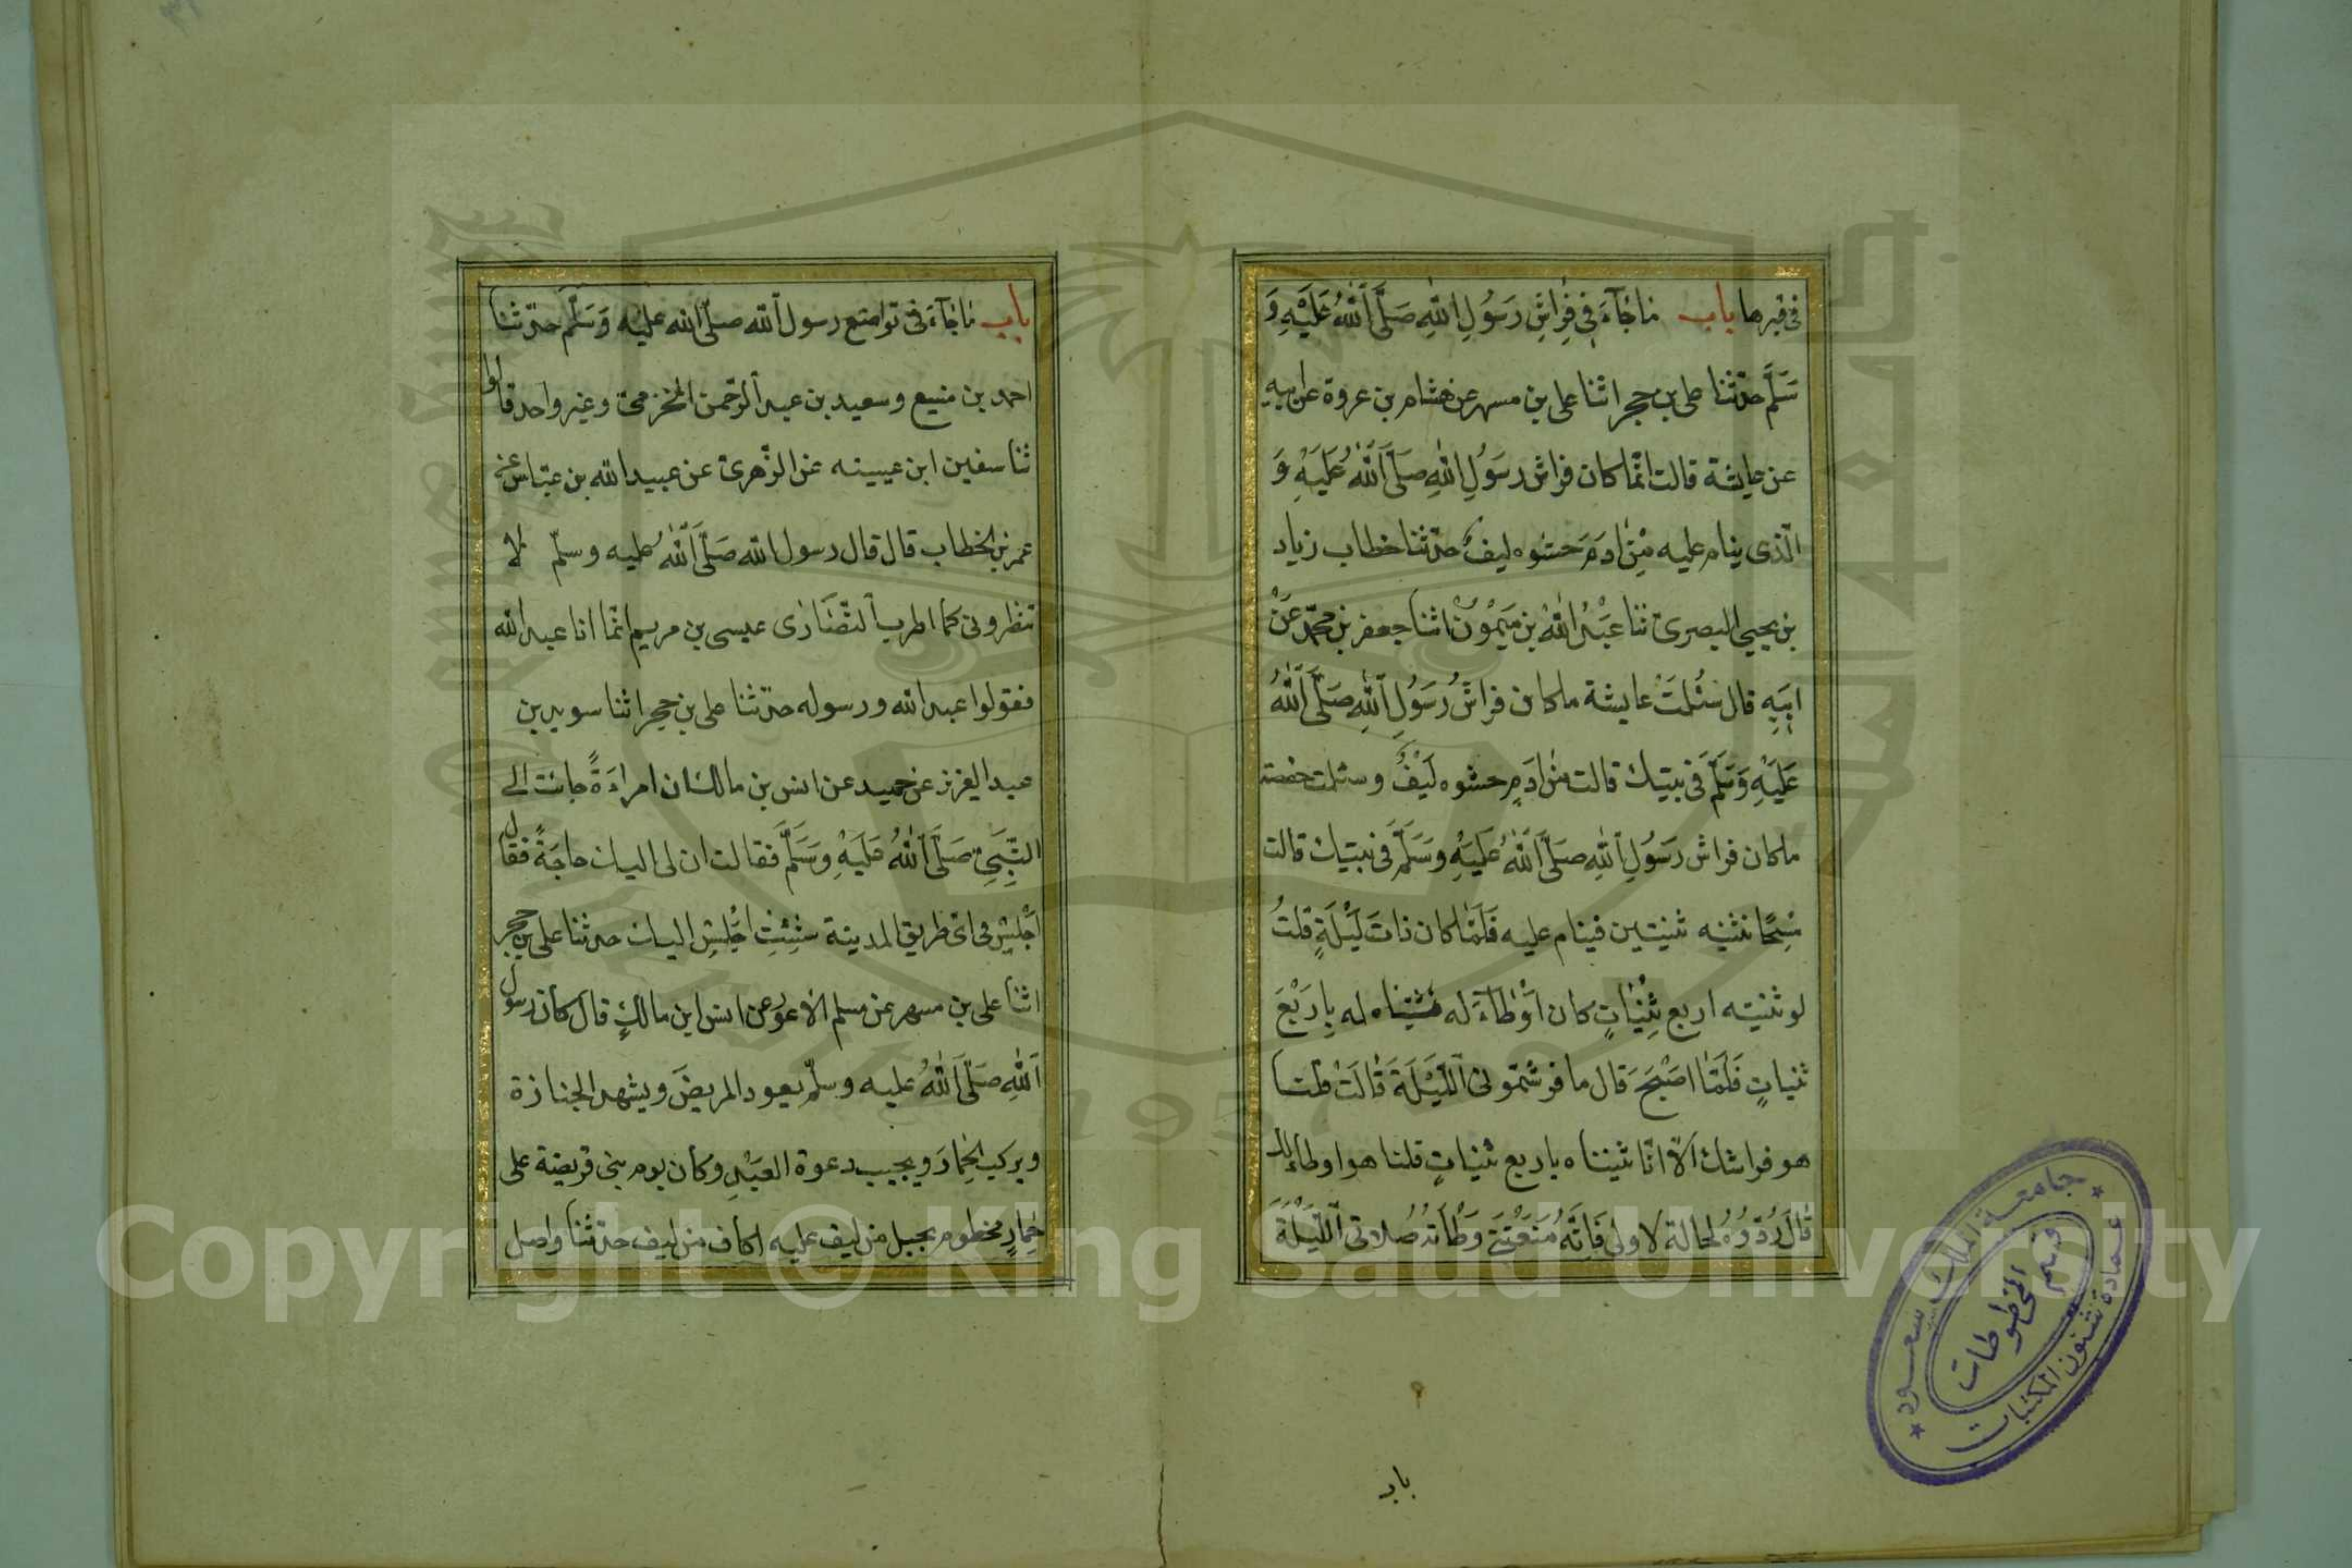 في قبرها باب ما جآء في فراش رسول الله صلى الله عليه و
سلم حدثنا على بن حجر اثنا على بن مسهر عن هشام بن عروة عن ابيه
عن عايشة قالت انما كان فراش رسول الله صلى الله عليه و
الذى ينام عليه من ادم حشوه ليف حدثنا خطاب زياد
بن يحيى البصرى ثنا عبد الله بن ميمون اثنا جعفر بن محمد عن
ابيه قال سئلت عايشة ما كان فراش رسول الله صلى الله
عليه وسلم فى بيتك قالت من ادم حشوه ليف وسئلت حفصة
ما كان فراش رسول الله صلى الله عليه وسلم فى بيتك قالت
مسحا نثنيه ثنيتين فينام عليه فلما كان ذات ليلة قلت
لو ثنيته اربع ثنيات كان اوطاء له فثنيناه له باربع
ثنيات فلما اصبح قال ما فرشتمونى الليلة قالت قلنا
هو فراشك الا انا ثنيناه باربع ثنيات قلنا هو اوطاء لك
قال ردوه لحالة لاولى فانه منعتنى وطأته صلاتى الليلة
باب
باب ما جآء فى تواضع رسول الله صلى الله عليه وسلم حدثنا
احمد بن منيع وسعيد بن عبد الرحمن المخزومى وغير واحد قالوا
ثنا سفين ابن عيينه عن الزهرى عن عبيد الله بن عباس عن
عمر بن الخطاب قال قال رسول الله صلى الله عليه وسلم لا
تطرونى كما اطرت النصارى عيسى بن مريم انما انا عبد الله
فقولوا عبد الله ورسوله حدثنا على بن حجر اثنا سويد بن
عبد العزيز عن حميد عن انس بن مالك ان امراءة جائت الى
النبي صلى الله عليه وسلم فقالت ان لى اليك حاجة فقال
اجلس فى اى طريق المدينة شئت اجلس اليك حدثنا على بن حجر
اثنا على بن مسهر عن مسلم الاعور عن انس ابن مالك قال كان رسول
الله صلى الله عليه وسلم يعود المريض ويشهد الجنازة
ويركب الحمار ويجيب دعوة العبد وكان يوم بنى قريضة على
حمار مخطوم بحبل من ليف عليه اكاف من ليف حدثنا واصل
جامعة الملك سعود
قسم المخطوطات
عمادة شئون المكتبات
1957
Copyright © King Saud University